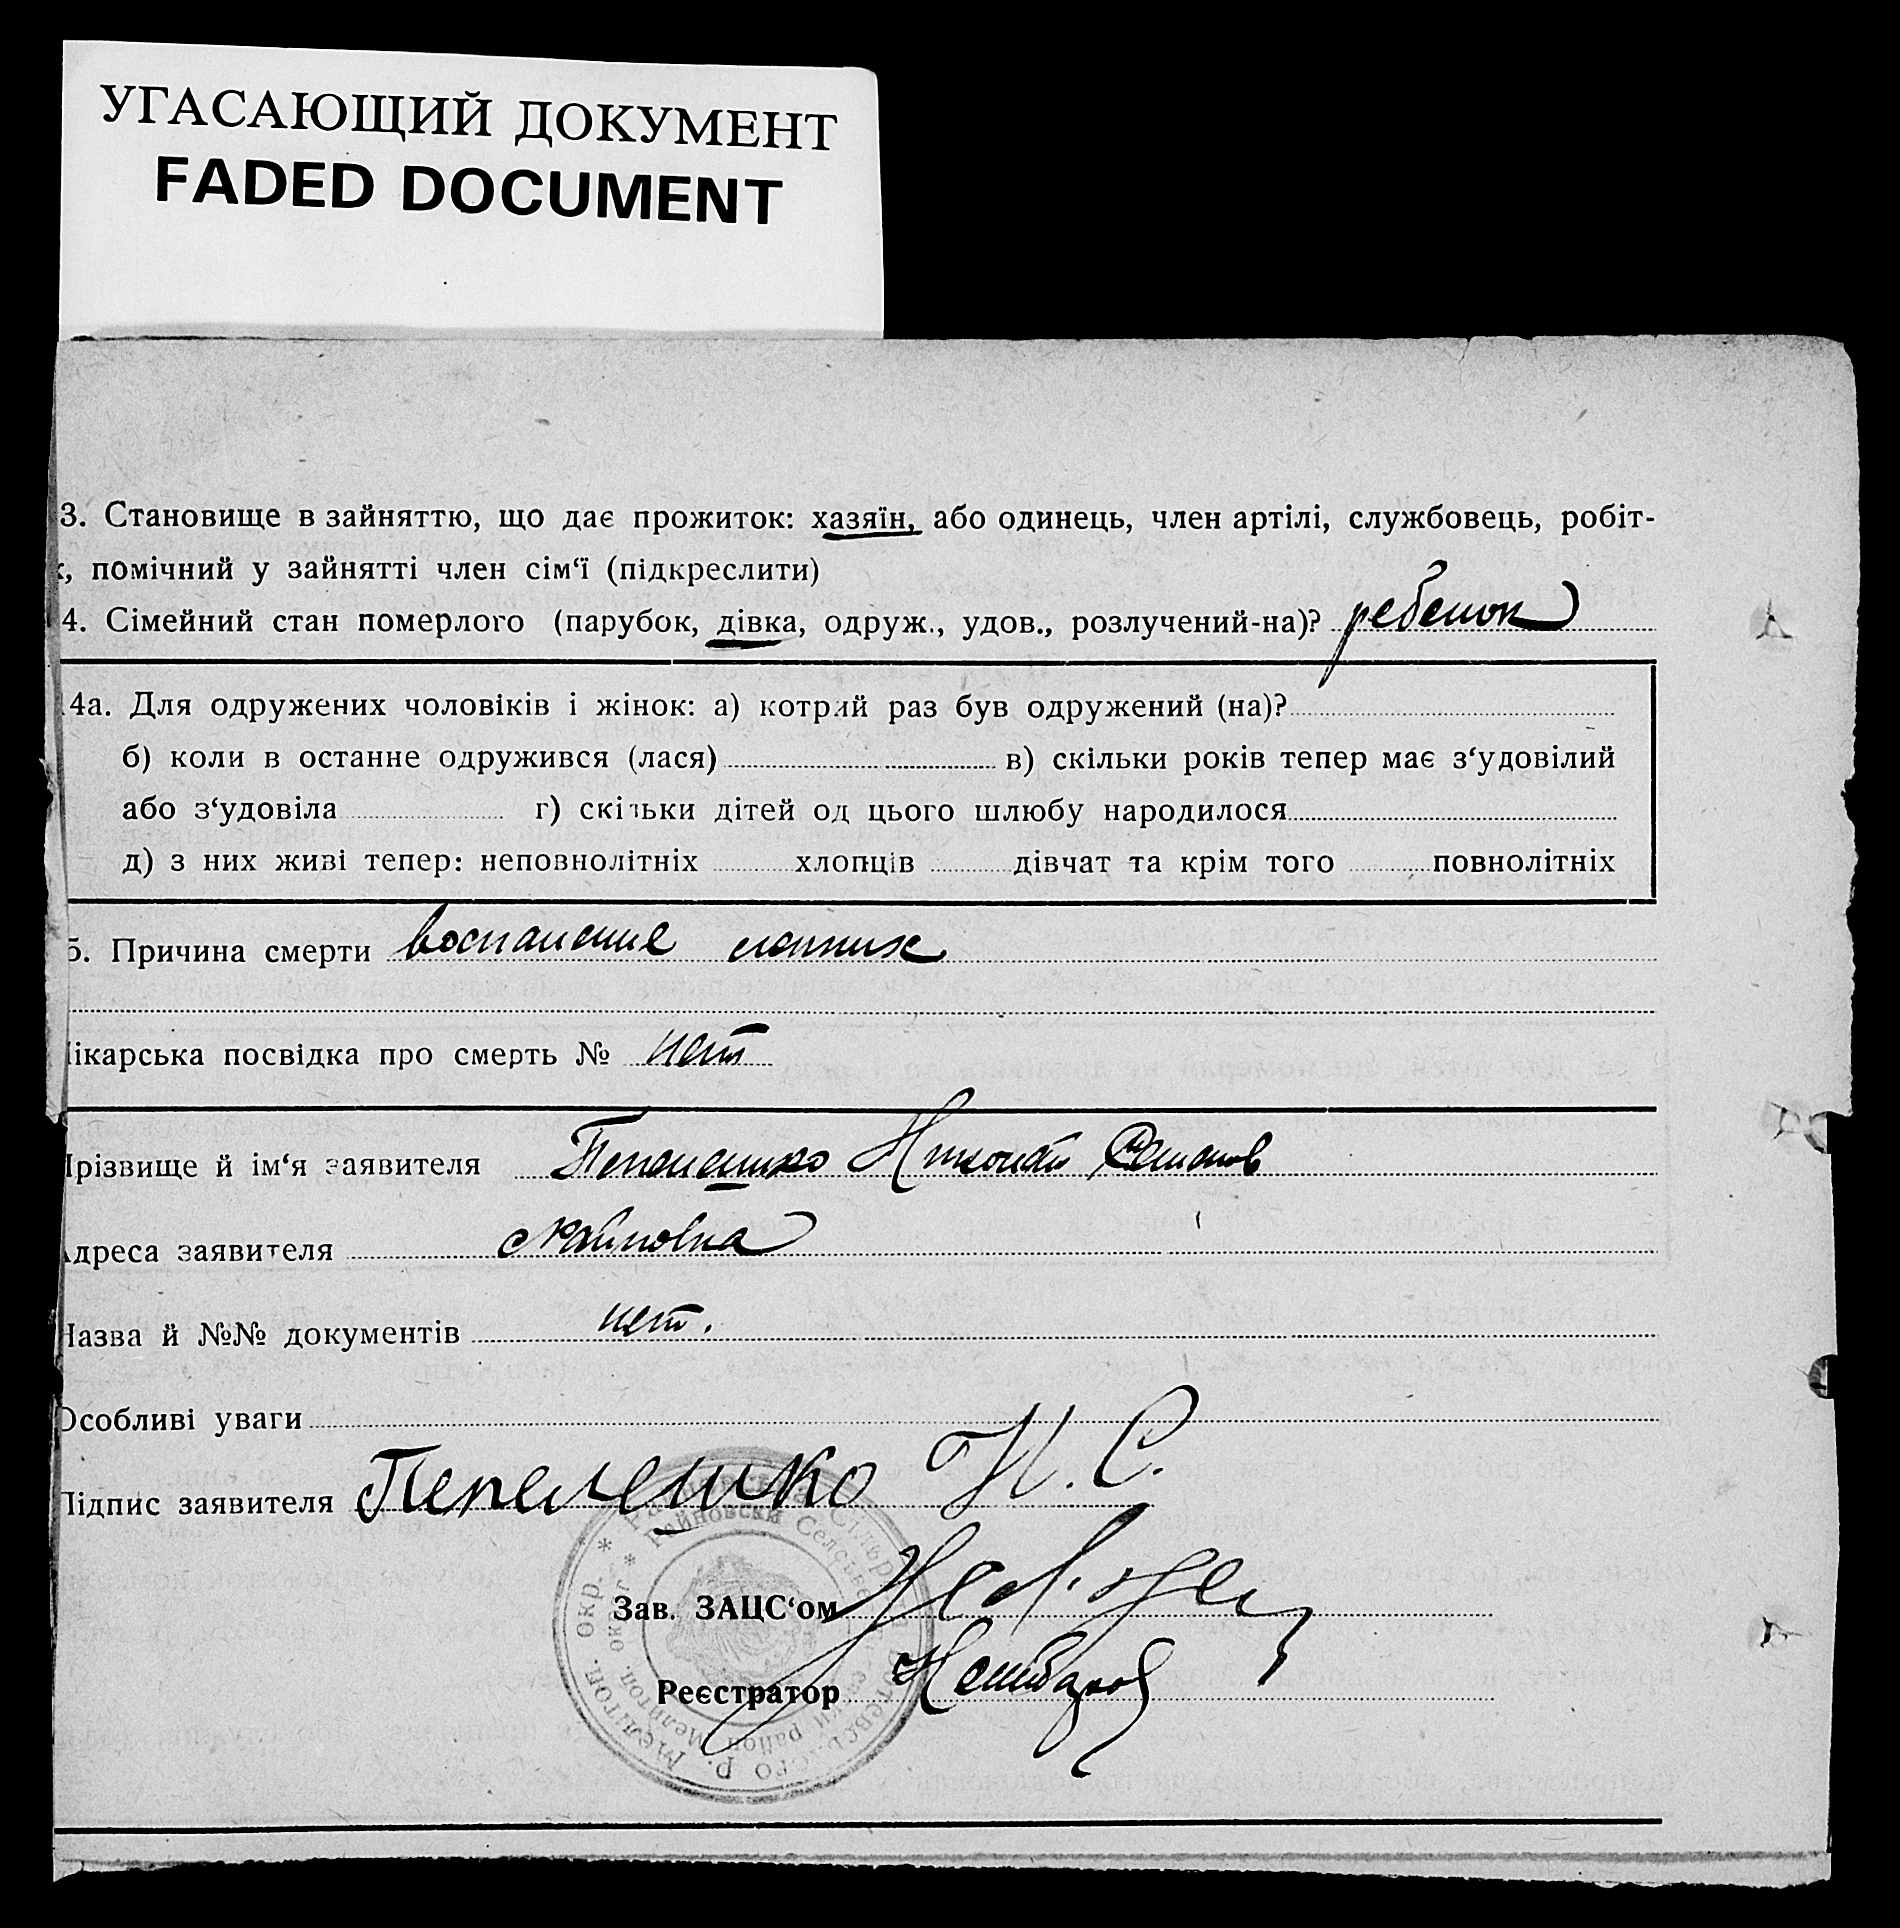 УГАСАЮЩИЙ ДОКУМЕНТ
FADED DOCUMENT
3. Становище в зайняттю, що дає прожиток: хазяїн, або одинець, член артілі, службовець, робіт-
, помічний у зайнятті член сім‘ї (підкреслити)
4. Сімейний стан померлого (парубок, дівка, одруж., удов., розлучений-на)? ребенок
4а. Для одружених чоловіків і жінок: а) котрий раз був одружений (на)?
б) коли в останне одружився (лася) в) скільки років тепер має з‘удовілий
або з‘удовіла г) скільки дітей од цього шлюбу народилося
д) з них живі тепер: неповнолітніх хлопців дівчат та крім того повнолітніх
5. Причина смерти воспаление легких
ікарська посвідка про смерть № нет
різвище й ім‘я заявителя Пепелешко Николай
дреса заявителя с Райновка
азва й №№ документів нет.
Особливі уваги
Підпис заявителя Пепелешко Н. С.
Зав. ЗАЦС‘ом
Реєстратор